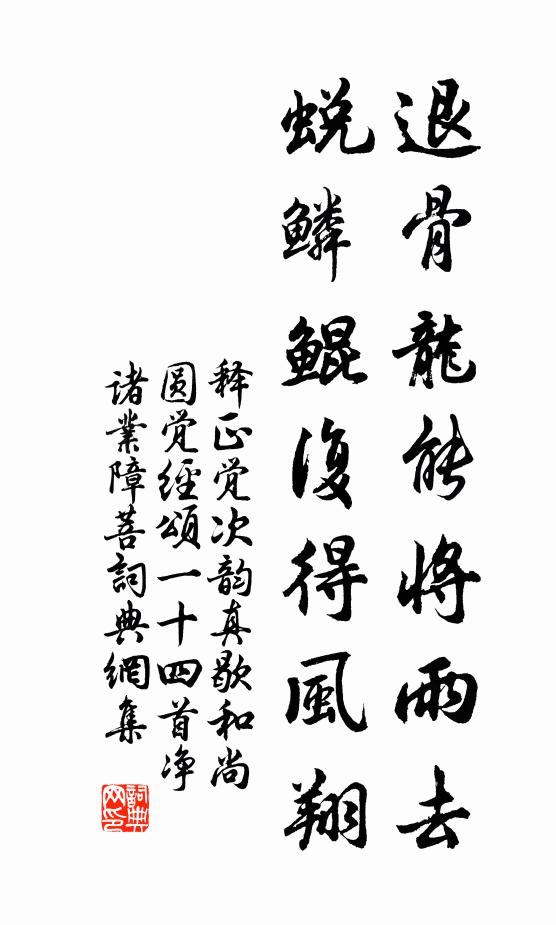 退骨龍能將雨去
蜕鱗鯤復得風翔
释正觉次韵真歇和尚
圆觉經頌一十四首净
诸業障菩詞典網集
詞典网印